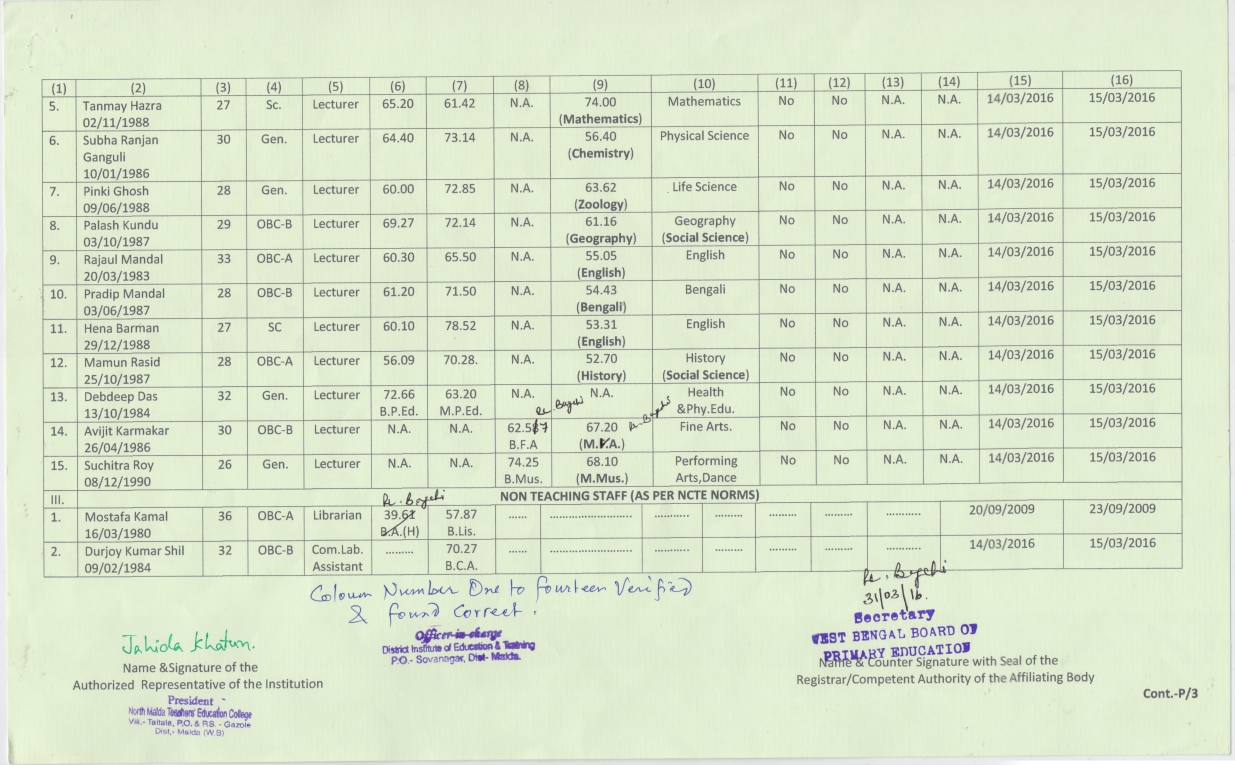 (1) (2) (3) (4) (5) (6) (7) (8) (9) (10) (11) (12) (13) (14) (15) (16)
5. Tanmay Hazra 27 Sc. Lecturer 65.20 61.42 N.A. 74.00 Mathematics No No N.A. N.A. 14/03/2016 15/03/2016
02/11/1988 (Mathematics)
6. Subha Ranjan 30 Gen. Lecturer 64.40 73.14 N.A. 56.40 Physical Science No No N.A. N.A. 14/03/2016 15/03/2016
Ganguli (Chemistry)
10/01/1986
7. Pinki Ghosh 28 Gen. Lecturer 60.00 72.85 N.A. 63.62 Life Science No No N.A. N.A. 14/03/2016 15/03/2016
09/06/1988 (Zoology)
8. Palash Kundu 29 OBC-B Lecturer 69.27 72.14 N.A. 61.16 Geography No No N.A. N.A. 14/03/2016 15/03/2016
03/10/1987 (Geography) (Social Science)
9. Rajaul Mandal 33 OBC-A Lecturer 60.30 65.50 N.A. 55.05 English No No N.A. N.A. 14/03/2016 15/03/2016
20/03/1983 (English)
10. Pradip Mandal 28 OBC-B Lecturer 61.20 71.50 N.A. 54.43 Bengali No No N.A. N.A. 14/03/2016 15/03/2016
03/06/1987 (Bengali)
11. Hena Barman 27 SC Lecturer 60.10 78.52 N.A. 53.31 English No No N.A. N.A. 14/03/2016 15/03/2016
29/12/1988 (English)
12. Mamun Rasid 28 OBC-A Lecturer 56.09 70.28. N.A. 52.70 History No No N.A. N.A. 14/03/2016 15/03/2016
25/10/1987 (History) (Social Science)
13. Debdeep Das 32 Gen. Lecturer 72.66 63.20 N.A. N.A. Health No No N.A. N.A. 14/03/2016 15/03/2016
13/10/1984 B.P.Ed. M.P.Ed. &Phy.Edu.
14. Avijit Karmakar 30 OBC-B Lecturer N.A. N.A. 67.20 Fine Arts. No No N.A. N.A. 14/03/2016 15/03/2016
26/04/1986 B.F.A
15. Suchitra Roy 26 Gen. Lecturer N.A. N.A. 74.25 68.10 Performing No No N.A. N.A. 14/03/2016 15/03/2016
08/12/1990 B.Mus. (M.Mus.) Arts,Dance
III. NON TEACHING STAFF (AS PER NCTE NORMS)
1. Mostafa Kamal 36 OBC-A Librarian 57.87 20/09/2009 23/09/2009
16/03/1980 B.A.(H) B.Lis.
2. Durjoy Kumar Shil 32 OBC-B Com.Lab. 70.27 14/03/2016 15/03/2016
09/02/1984 Assistant B.C.A.
Coloum Number One to fourteen Verified
& found Correct.
31/03/16.
Secretary
WEST BENGAL BOARD OF
PRIMARY EDUCATION
Officer-in-charge
District Institute of Education & Training
P.O.- Sovanagar, Dist- Malda.
Jahida Khatun.
Name &Signature of the
Authorized Representative of the Institution
President
North Malda Teachers' Education College
Vill.- Taltala, P.O. & P.S. - Gazole
Dist,- Malda (W.B)
Name & Counter Signature with Seal of the
Registrar/Competent Authority of the Affiliating Body
Cont.-P/3